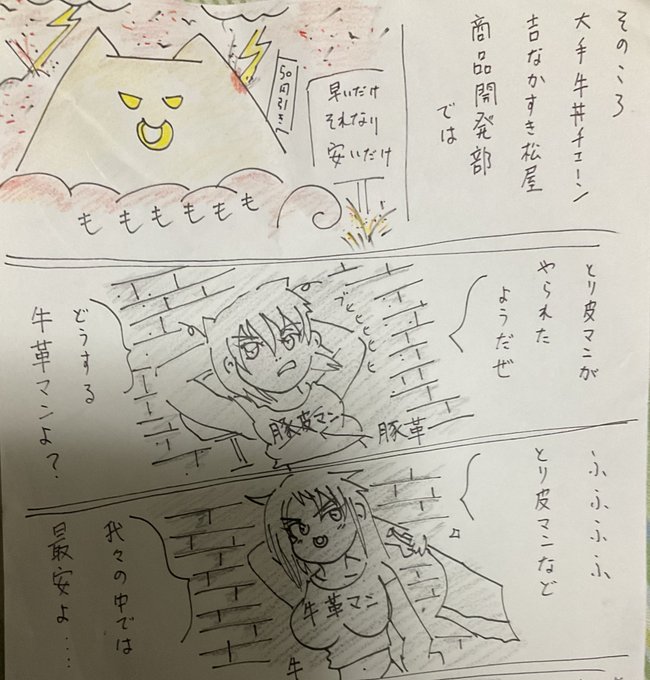 そのころ
大手牛丼チェーン
吉なかすき松屋
商品開発部
では
早いだけ
それなり
安いだけ
50円引き
もももももも
とり皮マンが
やられた
ようだぜ
どうする
牛革マンよ？
豚皮マン
豚革
ふふふふ
とり皮マンなど
我々の中では
最安よ……
牛革マン
牛